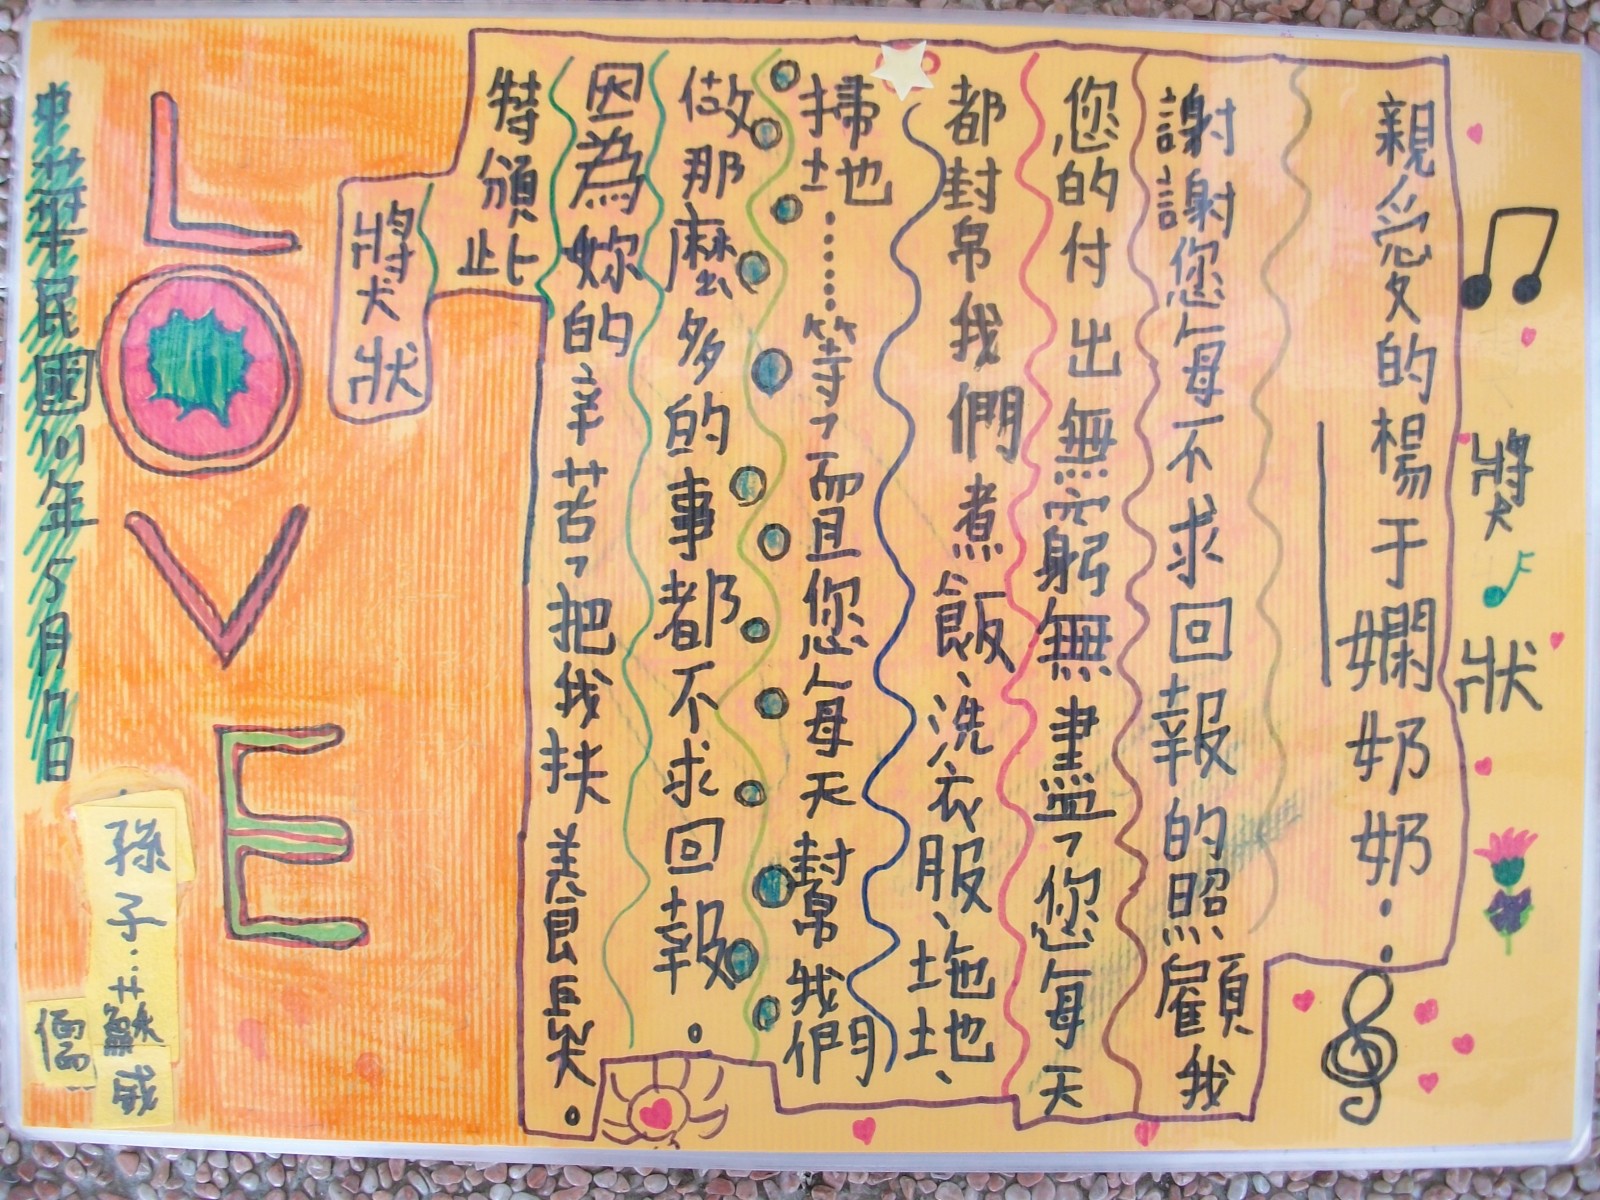 獎狀
親愛的楊于嫻奶奶:
謝謝您每不求回報的照顧我
您的付出無窮無盡,您每天
都幫我們煮飯、洗衣服、拖地、
掃地……等,而且您每天幫我們
做那麼多的事都不求回報。
因為妳的辛苦,把我扶養長大。
特頒此
獎狀
LOVE
中華民國101年5月日
孫子:蘇威儒